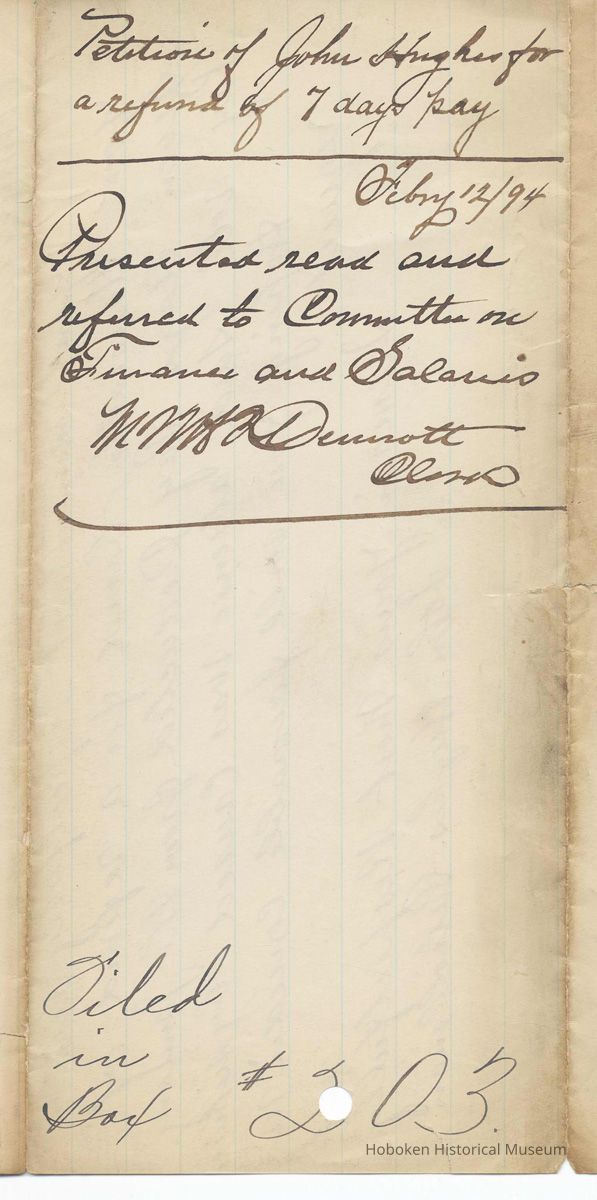 Petition of John Hughes for
a refund of 7 days pay
Febry 12/94
Presented read and
referred to Committee on
Finance and Salaries
Dermott
Clerk
Filed
in
Box # 203.
Hoboken Historical Museum